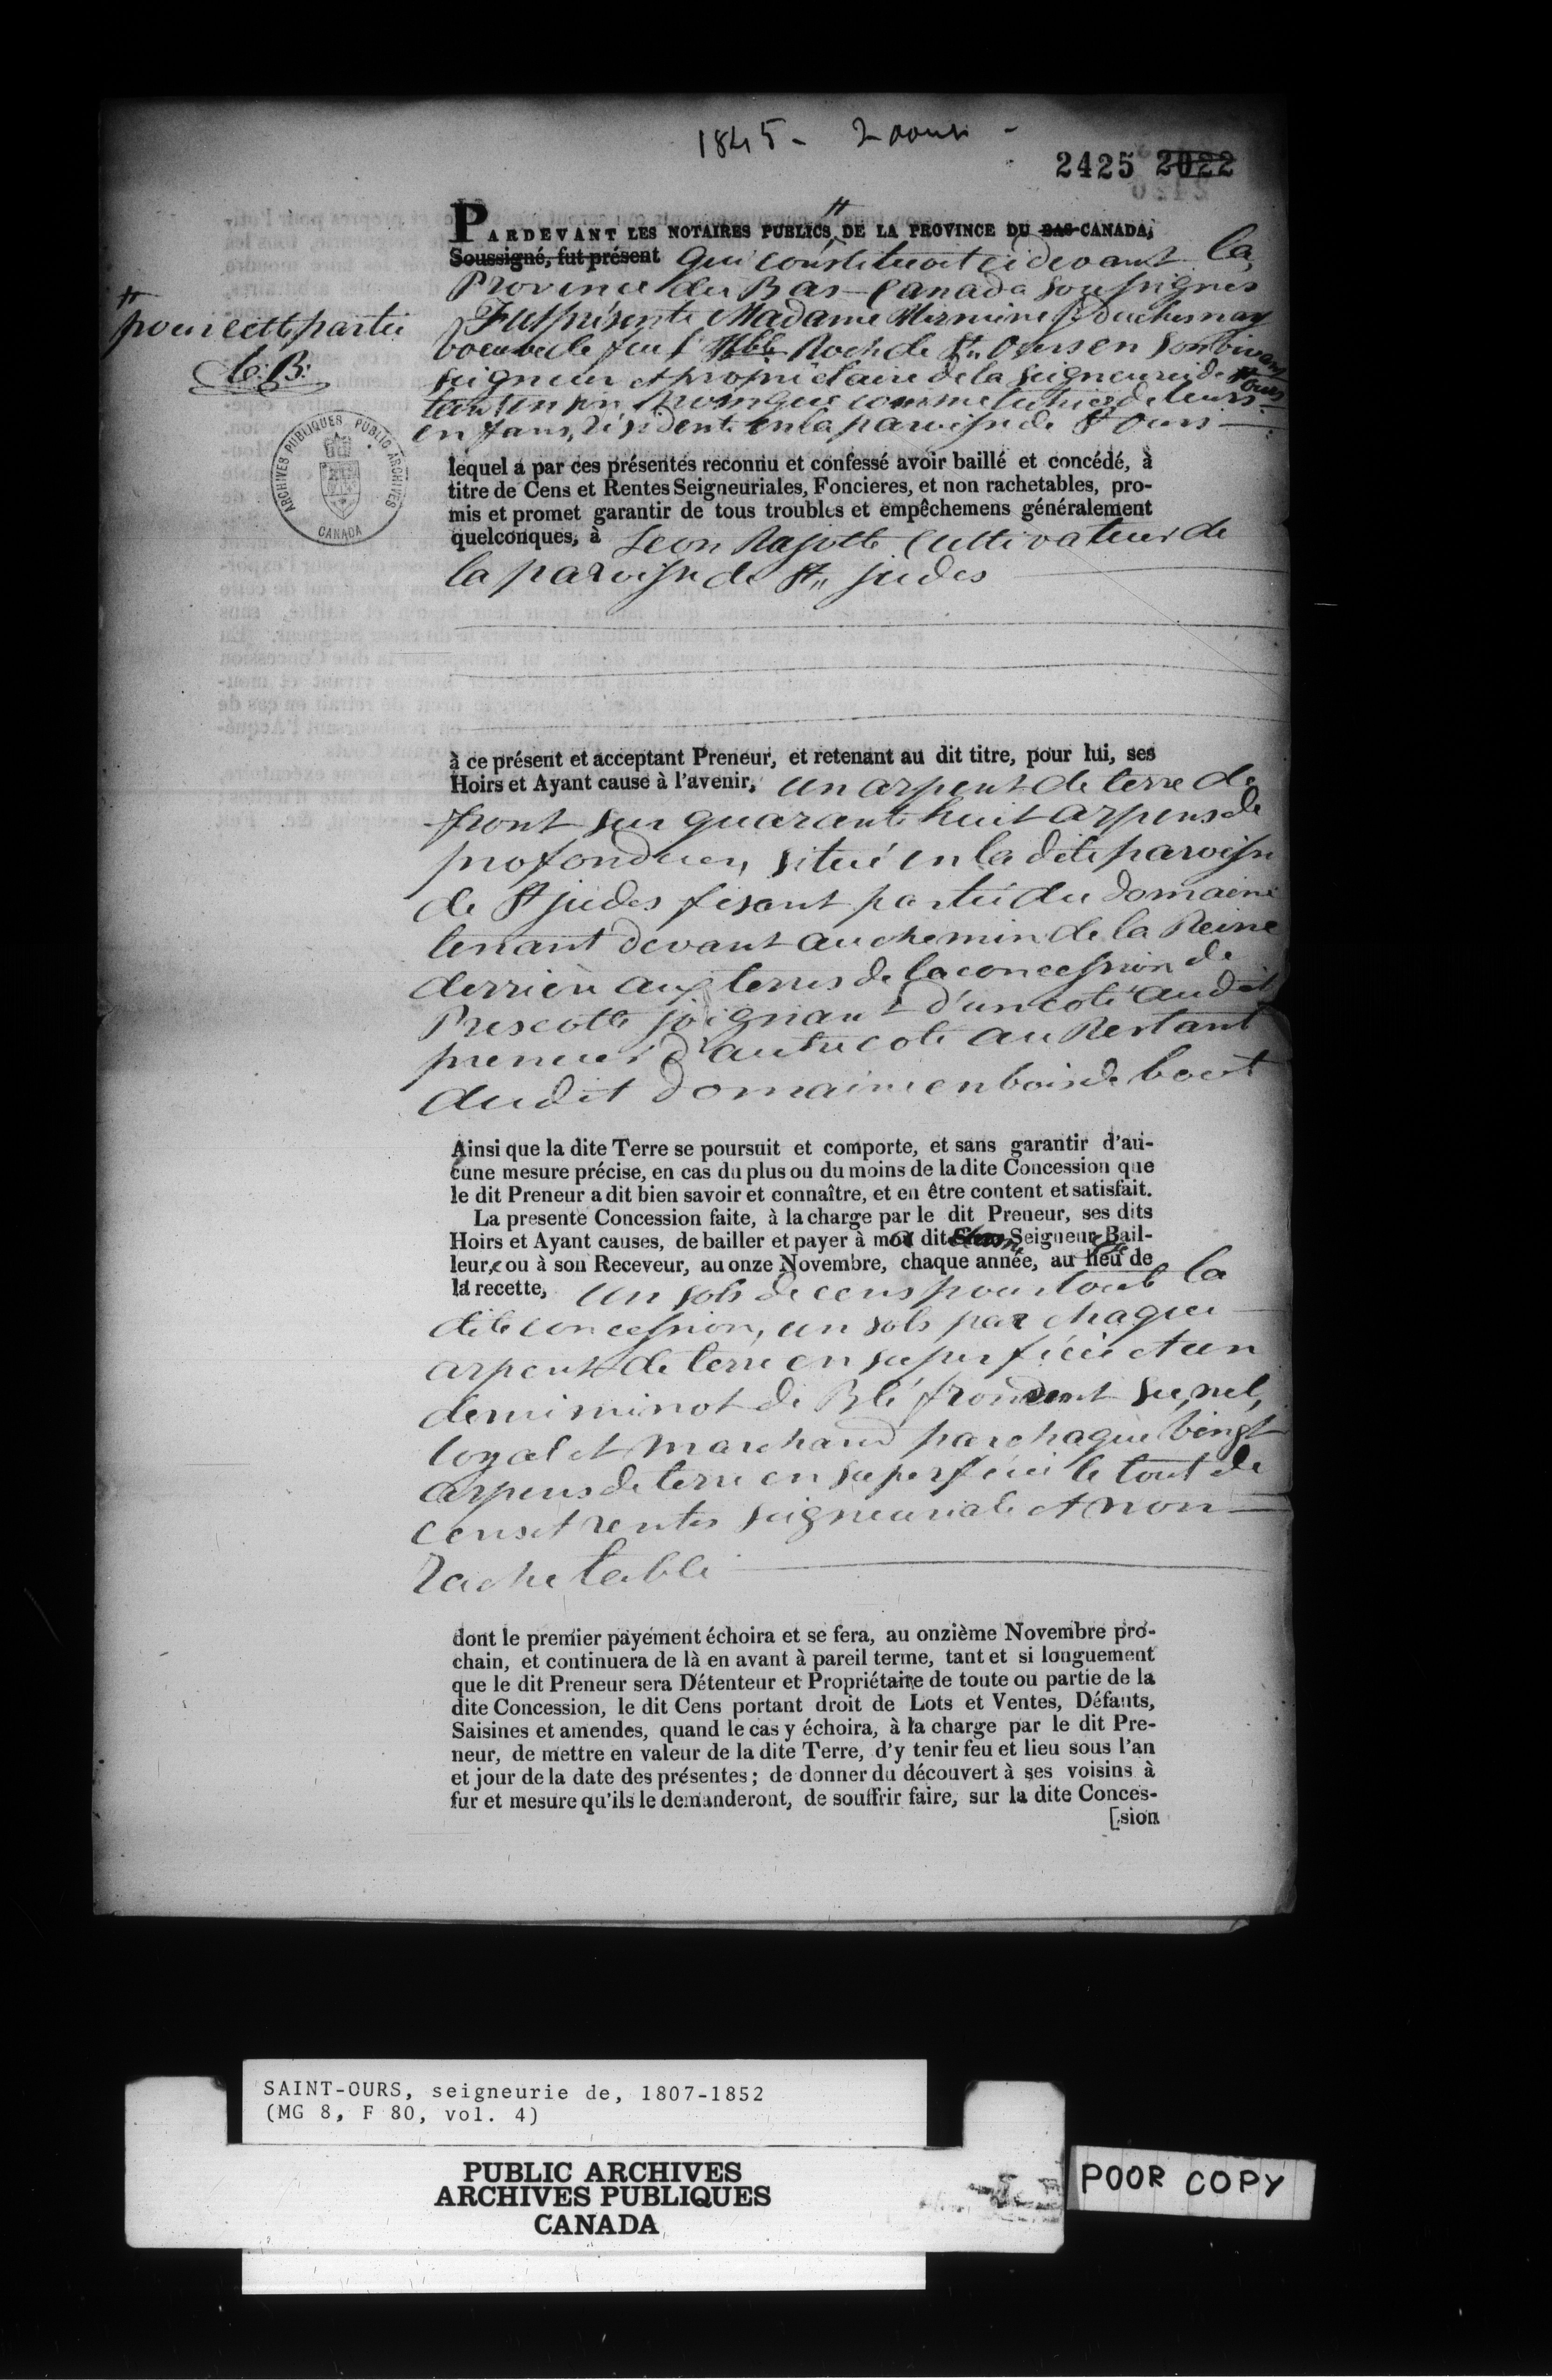 1845 - 2 aout -
2425 2022
PARDEVANT LES NOTAIRES PUBLICS, # DE LA PROVINCE DU BAS-CANADA,
Soussigné, fut présent qui constituoit ci devant la
Province du Bas-Canada soussignés
#
pour cette partie
C. B.
Fut présente Madame Hermine J. Duchesnay
veuve de feu l'Hble Roch de St. Ours en son vivant
seigneur et propriétaire de la seigneurie de St Ours
tant en son nom que comme tutrice de leurs
enfans, résidente en la paroisse de St Ours
ARCHIVES PUBLIQUES PUBLIC ARCHIVES
CANADA
lequel a par ces présentes reconnu et confessé avoir baillé et concédé, à
titre de Cens et Rentes Seigneuriales, Foncieres, et non rachetables, pro-
mis et promet garantir de tous troubles et empêchemens généralement
quelconques, à Leon Rajotte Cultivateur de
la paroisse de St. judes
à ce présent et acceptant Preneur, et retenant au dit titre, pour lui, ses
Hoirs et Ayant cause à l'avenir, un arpent de terre de
front sur quarante huit arpens de
profondeur, situé en la dite paroisse
de St judes fesant partie du Domaine
tenant devant au chemin de la Reine
derriere aux terres de la concession de
Prescotte joignant d'un coté audit
preneur d'autre coté au Restant
dudit Domaine en bois de bout
Ainsi que la dite Terre se poursuit et comporte, et sans garantir d'au-
cune mesure précise, en cas du plus ou du moins de la dite Concession que
le dit Preneur a dit bien savoir et connaître, et en être content et satisfait.
La presente Concession faite, à la charge par le dit Preneur, ses dits
Hoirs et Ayant causes, de bailler et payer à mad dite Seigneur Bail-
leur,e ou à son Receveur, au onze Novembre, chaque année, au lieu de
la recette, un sols de cens pour toute la
dite concession, un sols par chaque
arpent de terre en superficie et un
demi minot de Blé froment sec, net,
loyal et marchand par chaque vingt
arpens de terre en superficie le tout de
cens et rentes seigneuriale et non
rachetable
dont le premier payement échoira et se fera, au onzième Novembre pro-
chain, et continuera de là en avant à pareil terme, tant et si longuement
que le dit Preneur sera Détenteur et Propriétaire de toute ou partie de la
dite Concession, le dit Cens portant droit de Lots et Ventes, Défauts,
Saisines et amendes, quand le cas y échoira, à la charge par le dit Pre-
neur, de mettre en valeur de la dite Terre, d'y tenir feu et lieu sous l'an
et jour de la date des présentes; de donner du découvert à ses voisins à
fur et mesure qu'ils le demanderont, de souffrir faire, sur la dite Conces-
[sion
SAINT-OURS, seigneurie de, 1807-1852
(MG 8, F 80, vol. 4)
PUBLIC ARCHIVES
ARCHIVES PUBLIQUES
CANADA
POOR COPY